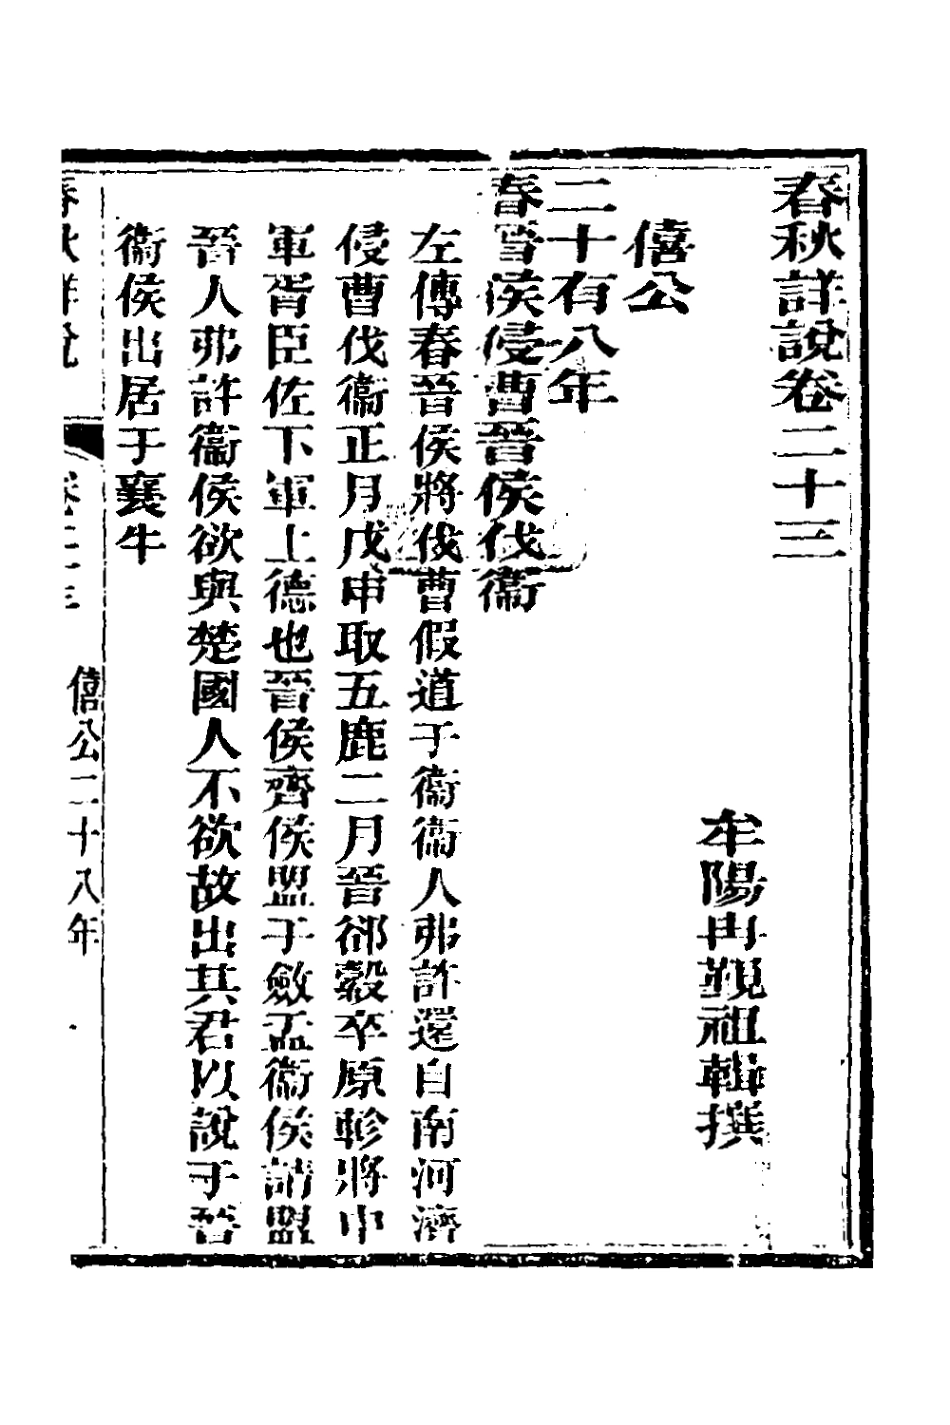 春秋詳說卷二十三
牟陽冉覲祖輯撰
僖公
二十有八年
春晉侯侵曹晉侯伐衞
左傳春晉侯將伐曹假道于衞衞人弗許還自南河濟
侵曹伐衞正月戊申取五鹿二月晉郤縠卒原軫將中
軍胥臣佐下軍上德也晉侯齊侯盟于斂盂衞侯請盟
晉人弗許衞侯欲與楚國人不欲故出其君以說于晉
衞侯出居于襄牛
春秋詳說 卷二十三 僖公二十八年